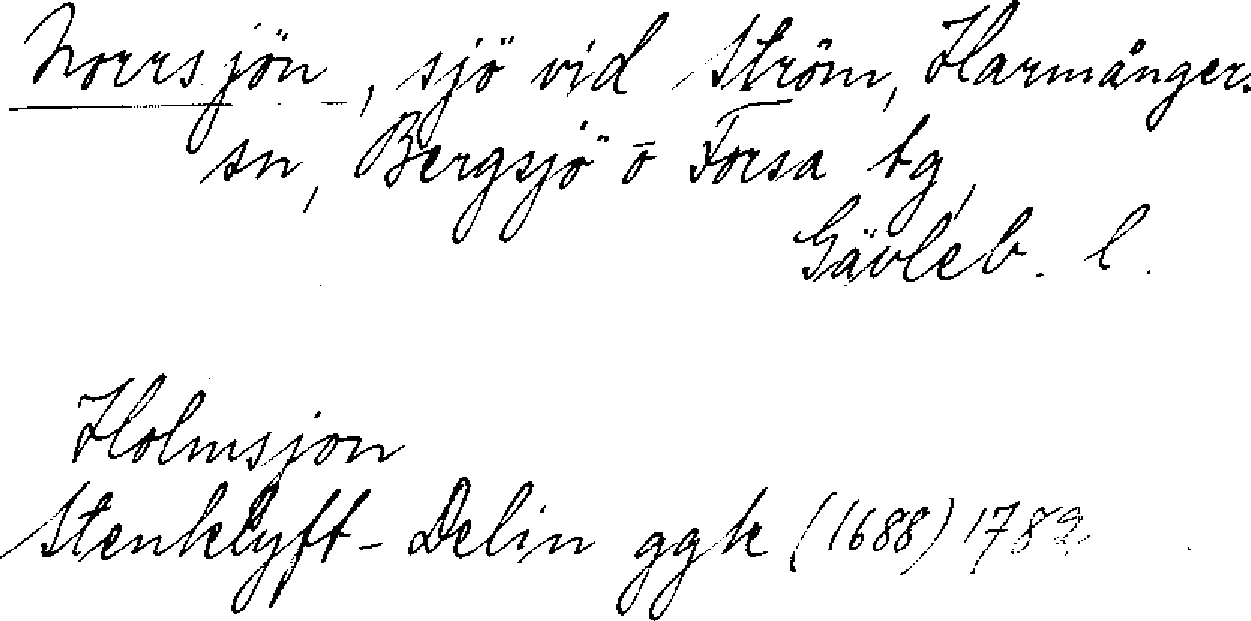 Norrsjön, sjö vid Ström, Harmånger.
sn, Bergsjö o Forsa tg,
Gävleb. l.
Holmsjon
Stenklyft-Delin ggk (1688) 1782